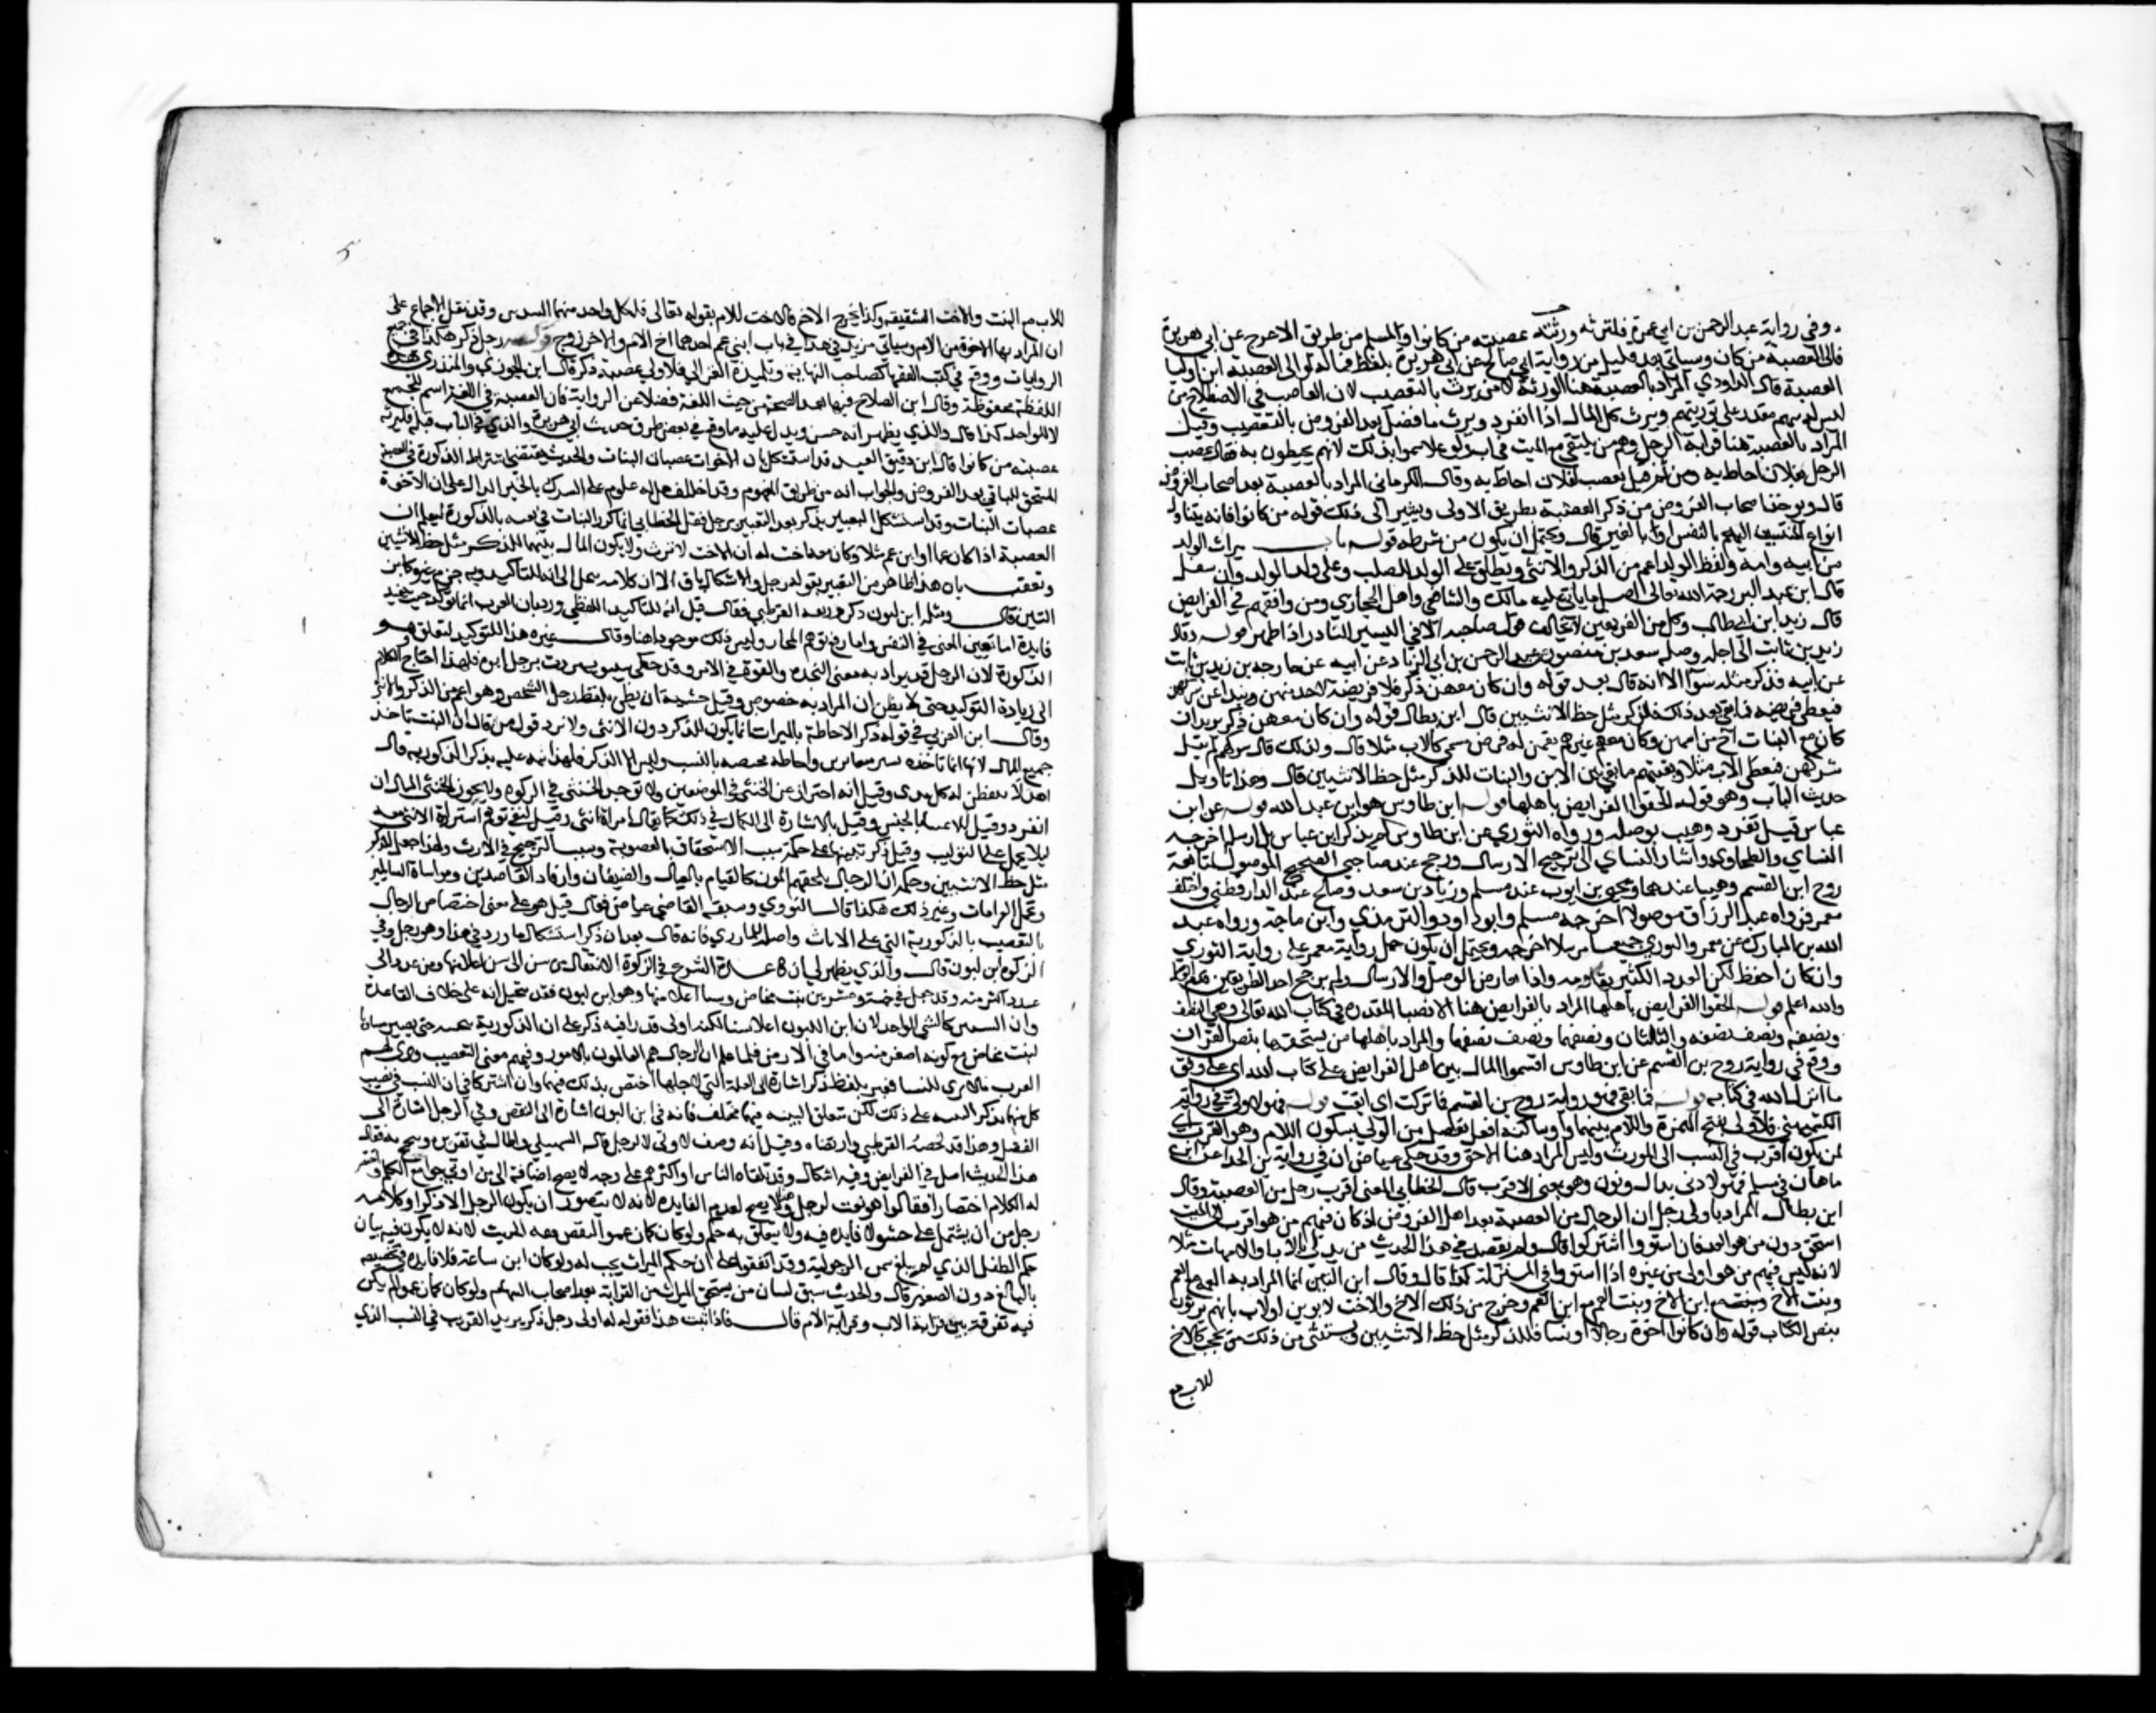 وفي رواية عبد الرحمن بن ابي عمرة فلترثه ورثته عصبته من كانوا ولمسلم من طريق الاعرج عن ابي هريرة
فالى العصبة من كان وسياتي بعد قليل من رواية ابي صالح عن ابي هريرة بلفظ فماله لموالي العصبة
العصبة قال الداودي المراد بالعصبة هنا الورثة لا من يرث بالتعصيب لان العاصب في الاصطلاح من
ليس له سهم مقدر على توريثهم ويرث كل المال اذا انفرد ويرث ما فضل بعد الفروض بالتعصيب وقيل
المراد بالعصبة هنا قرابة الرجل وهم من يلتقي مع الميت في اب ولو علا سموا بذلك لانهم يحيطون به يقال عصب
الرجل بفلان احاط به ومن ثم قيل تعصب لفلان احاط به وقال الكرماني المراد بالعصبة بعد اصحاب الفروض
قال ويوخذ اصحاب الفروض من ذكر العصبة بطريق الاولى ويشير الى ذلك قوله من كانوا فانه يتناول
انواع المنتسبين اليهم بالنفس او بالغير قال ويحتمل ان يكون من شرطه قوله باب ميراث الولد
من ابيه وامه ولفظ الولد اعم من الذكر والانثى ويطلق على الولد للصلب وعلى ولد الولد وان سفل
قال ابن عبد البر رحمه الله تعالى اصل ما بنى عليه مالك والشافعي واهل الحجاز ومن وافقهم في الفرايض
قال زيد ابن وكل من الفريقين لا يخالف قول صاحبه الا في اليسير النادر اذا ظهر قوله وقال
زيد بن ثابت الى اخره وصله سعيد بن منصور عن عبد الرحمن بن ابي الزناد عن ابيه عن خارجه بن زيد بن ثابت
عن ابيه فذكر مثله سوا الا انه قال بعد قوله وان كان معهن ذكر فلا فريضة لاحد منهن ويبدا بمن شركهن
فيعطى فريضته فما بقي بعد ذلك فللذكر مثل حظ الانثيين قال ابن بطال قوله وان كان معهن ذكر يريد ان
كان مع البنات اخ من ابيهن وكان معهم غيرهم ممن له فرض مسمى كالاب مثلا قال ولذلك قال شركهم ولم يقل
شركهن فيعطى الاب مثلا ويقسم ما بقي بين الابن والبنات للذكر مثل حظ الانثيين قال وهذا تاويل
حديث الباب وهو قوله الحقوا الفرايض باهلها قوله ابن طاوس هو ابن عبد الله قوله عن ابن
عباس قيل تفرد وهيب بوصله ورواه الثوري عن ابن طاوس لم يذكر ابن عباس بل ارسله اخرجه
النساي والطحاوي واشار النساي الى ترجيح الارسال ورجح عند صاحبي الصحيح الموصول لمتابعة
روح ابن القسم وهيبا عندهما ويحيى بن ايوب عند مسلم وزياد بن سعد وصالح عند الدارقطني واختلف
معمر فرواه عبد الرزاق موصولا اخرجه مسلم وابو داود والترمذي وابن ماجة ورواه عبد
الله بن المبارك عن معمر والثوري جميعا مرسلا اخرجه ويحتمل ان يكون حمل رواية معمر على رواية الثوري
وان كان احفظ لكن العدد الكثير يقاومه واذا تعارض الوصل والارسال ولم يرجح احد الطريقين
والله اعلم قوله الحقوا الفرايض باهلها المراد بالفرايض هنا الانصبا المقدرة في كتاب الله تعالى وهي النصف
ونصفه ونصف نصفه والثلثان ونصفهما ونصف نصفهما والمراد باهلها من يستحقها بنص القران
ووقع في رواية روح بن القسم عن ابن طاوس اقسموا المال بين اهل الفرايض على كتاب الله اي على وفق
ما انزل الله في كتابه قوله فما بقي في رواية روح بن القسم فما تركت اي ابقت قوله فهو لاولى في رواية
الكشميهني فلاولى بفتح الهمزة واللام بينهما واو ساكنة افعل تفضيل من الولي بسكون اللام وهو القرب اي
لمن يكون اقرب في النسب الى المورث وليس المراد هنا الاحق وقد حكى عياض ان في رواية ابن الحذا عن ابن
ماهان في مسلم فهو لادنى بدال ونون وهو بمعنى الاقرب قال الخطابي المعنى اقرب رجل من العصبة وقال
ابن بطال المراد باولى رجل ان الرجال من العصبة بعد اهل الفروض اذا كان فيهم من هو اقرب الى الميت
استحق دون من هو ابعد فان استووا اشتركوا قال ولم يقصد في هذا الحديث من يدلي بالابا والامهات مثلا
لانه ليس فيهم من هو اولى من غيره اذا استووا في المنزلة كذا قال وقال ابن التين انما المراد به العم مع العم
وبنت الاخ مع ابن الاخ وبنت العم مع ابن العم وخرج من ذلك الاخ والاخت لابوين او لاب بانهم يرثون
بنص الكتاب قوله وان كانوا اخوة رجالا ونسا فللذكر مثل حظ الانثيين ويستثنى من ذلك من يحجب كالاخ
للاب مع
للاب مع البنت والاخت الشقيقه وكذا يخرج الاخ والاخت للام بقوله تعالى فلكل واحد منهما السدس وقد نقل الاجماع على
ان المراد بها الاخوة من الام وسياتي مزيد في هذا في باب ابني عم احدهما اخ للام والاخر زوج قوله رجل ذكر هكذا في جميع
الروايات ووقع في كتب الفقها كصاحب النهاية وتلميذه الغزالي فلاولى عصبة ذكر قال ابن الجوزي والمنذري هذه
اللفظة ليست محفوظة وقال ابن الصلاح فيها بعد الصحة من حيث اللغة فضلا عن الرواية فان العصبة في اللغة اسم للجمع
لا للواحد كذا قال والذي يظهر انه اسم جنس ويدل عليه ما وقع في بعض طرق حديث ابي هريرة والذي في الباب قبله فليرثه
عصبته من كانوا قال ابن دقيق العيد قد استشكل بان الاخوات عصبات البنات والحديث يقتضي اشتراط الذكورة في العصبة
المستحق للباقي بعد الفروض والجواب انه من طريق المفهوم وقد اختلف هل له عموم
عصبات البنات وقد استشكل التعبير بذكر بعد التعبير برجل فقال الخطابي انما كرر البيان في نعته بالذكورة ليعلم ان
العصبة اذا كان عما او ابن عم مثلا وكان معه اخت له ان الاخت لا ترث ولا يكون المال بينهما للذكر مثل حظ الانثيين
وتعقب بان هذا ظاهر من التعبير بقوله رجل والاشكال باق الا ان كلامه ينحل الى انه للتاكيد وبه جزم غيره كابن
التين قال ومثله ابن لبون ذكر وزيفه القرطبي فقال قيل انه للتاكيد اللفظي ورد بان العرب انما توكد حيث يفيد
فايدة اما تعين المعنى في النفس واما رفع توهم المجاز وليس ذلك موجودا هنا وقال غيره هذا التوكيد لمتعلق
الذكورة لان الرجل قد يراد به معنى النجدة والقوة في الامر وقد حكى سيبويه مررت برجل رجل ابوه فلهذا احتاج الكلام
الى زيادة التوكيد حتى لا يظن ان المراد به خصوص وقيل خشية ان يظن بلفظ رجل الشخص وهو اعم من الذكر والانثى
وقال ابن العربي في قوله ذكر الاحاطة بالميراث انما يكون للذكر دون الانثى ولا يرد قول من قال ان البنت تاخذ
جميع المال لانها انما تاخذه بسببين متغايرين والاحاطة مختصة بالنسب وليس الا الذكر فلهذا نبه عليه بذكر الذكورية قال
لا يتفطن له كل مدع وقيل انه احتراز عن الخنثى في الموضعين ولا تؤخذ الخنثى في الزكوة ولا يحوز الخنثى المال ان
انفرد وقيل للاعتنا بالجنس وقيل بالاشارة الى الكمال في ذلك كما يقال امراة انثى وقيل لنفي توهم اشتراك الانثى معه
ليلا يحمل على التغليب وقيل ذكر تنبيها على سبب الاستحقاق بالعصوبة وسبب الترجيح في الارث ولهذا جعل للذكر
مثل حظ الانثيين وحكمته ان الرجال تلحقهم المون كالقيام بالعيال والضيفان وارفاد القاصدين ومواساة السايلين
وتحمل الغرامات وغير ذلك هكذا قال النووي وسبقه القاضي عياض فقال قيل هو على معنى اختصاص الرجال
بالتعصيب بالذكورية التي على الاناث واصله للمازري فانه قال بعد ان ذكر استشكال ما ورد في هذا وهو رجل ذكر وفي
الزكوة ابن لبون قال والذي يظهر لي ان قاعدة الشرع في الزكوة الانتقال من سن الى سن اعلا منها ومن عدد الى
عدد اكثر منه وقد جعل في خمسة وعشرين بنت مخاض وسنا اعلا منها وهو ابن لبون فقد يتخيل انه على خلاف القاعدة
وان السنين كالسن الواحد لان ابن اللبون اعلا سنا لكنه ادنى قدرا فنبه بذكر على ان الذكورية تبخسه حتى يصير مساويا
لبنت مخاض مع كونه اصغر منه واما في الارض فلما علم ان الرجال هم القايمون بالامور وفيهم معنى التعصيب وترى لهم
العرب ما لا ترى للنسا فعبر بلفظ ذكر اشارة الى العلة التي لاجلها اختص بذلك فهما وان اشتركا في ان السبب في وصف
كل منهما بذكر التنبيه على ذلك لكن متعلق التنبيه فيهما مختلف فانه في ابن اللبون اشارة الى النقص وفي الرجل اشارة الى
الفضل وهذا قد لخصه القرطبي وارتضاه وقيل انه وصف لاولى لا لرجل قاله السهيلي واطال في تقريره وتبجح به فقال
هذا الحديث اصل في الفرايض وفيه اشكال وقد تلقاه الناس او اكثرهم على وجه لا يصح اضافته الى من اوتي جوامع الكلم واختصر
له الكلام اختصارا فقالوا هو نعت لرجل وهذا لا يصح لعدم الفايدة لانه لا يتصور ان يكون الرجل الا ذكرا وكلامه
اجل من ان يشتمل على حشو لا فايدة فيه ولا يتعلق به حكم ولو كان كما زعموا لنقص فقه الحديث لانه لا يكون فيه بيان
حكم الطفل الذي لم يبلغ سن الرجولية وقد اتفقوا على ان حكم الميراث يجب له ولو كان ابن ساعة فلا فايدة في تخصيصه
بالبالغ دون الصغير قال والحديث سبق لبيان من يستحق الميراث من القرابة بعد اصحاب السهام ولو كان كما زعموا لم يكن
فيه تفرقة بين قرابة الاب وقرابة الام قال فاذا ثبت هذا فقوله اولى رجل ذكر يريد القريب في النسب الذي